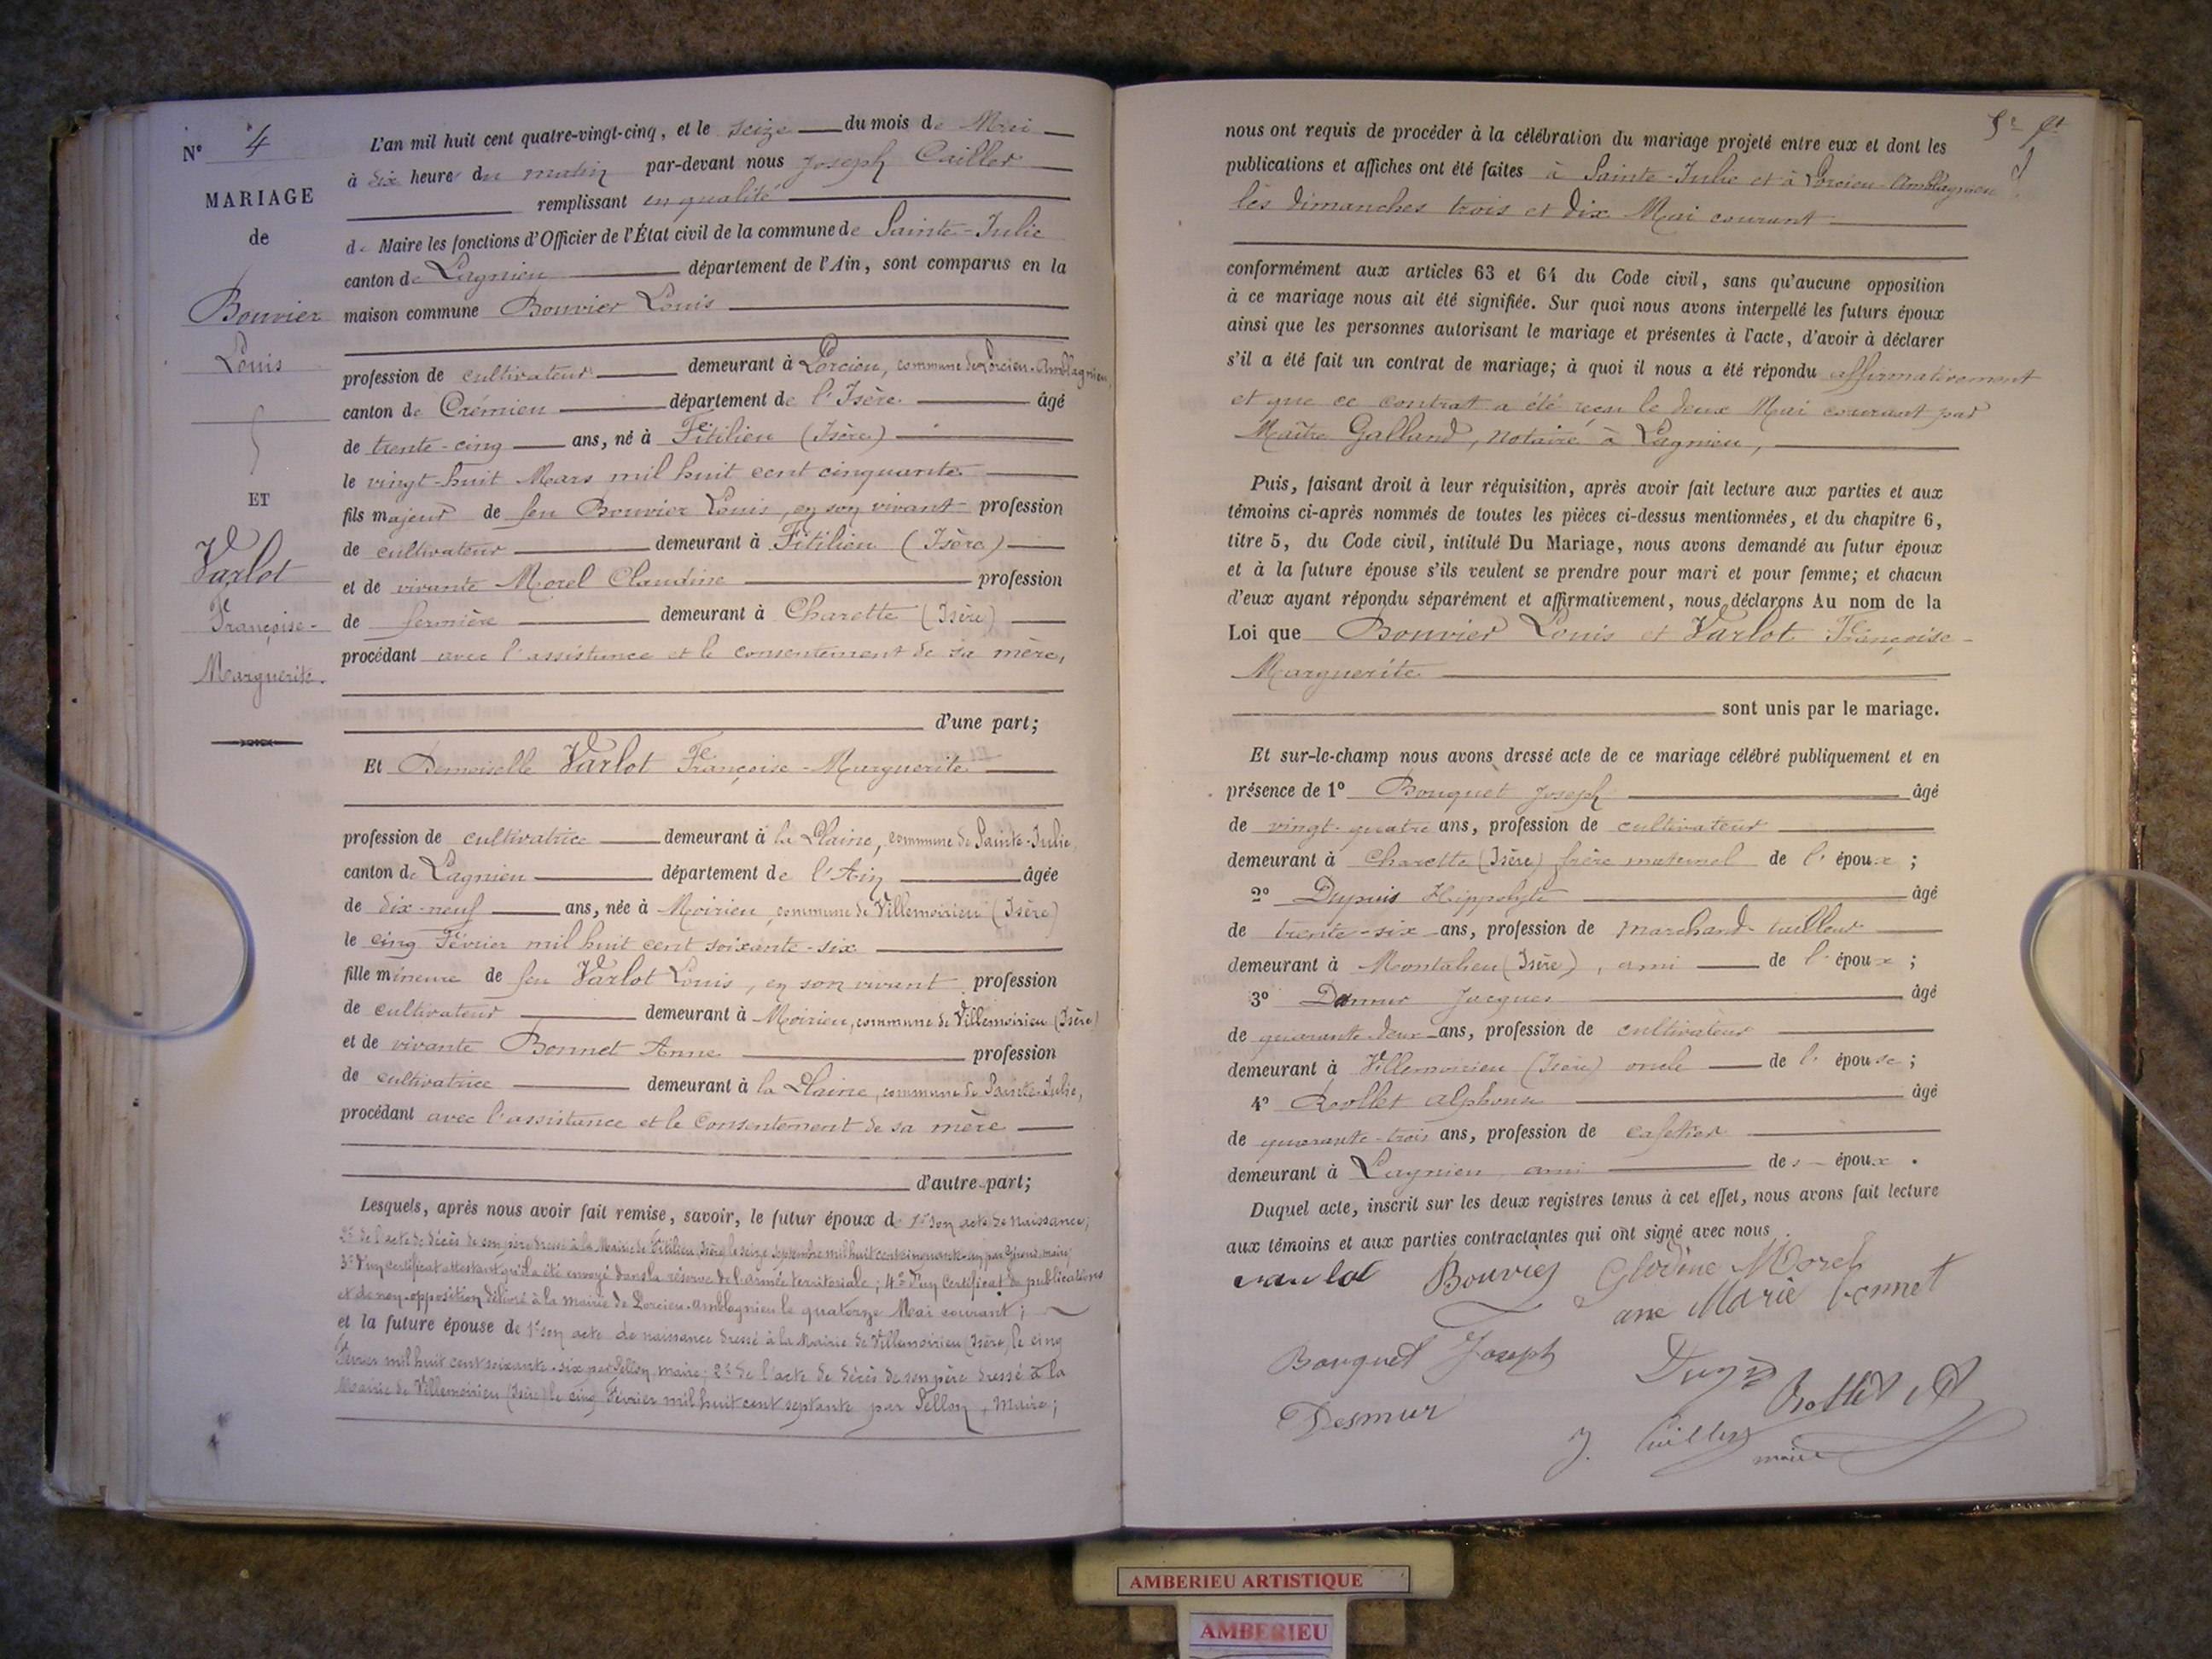 N° 4
MARIAGE
de
Bouvier
Louis
ET
Varlot
Françoise-
Marguerite.
L'an mil huit cent quatre-vingt-cinq, et le seize du mois de Mai
à dix heures du matin par-devant nous Joseph Cailler
remplissant en qualité
de Maire les fonctions d'Officier de l'État civil de la commune de Sainte-Julie
canton de Lagnieu département de l'Ain, sont comparus en la
maison commune Bouvier Louis
profession de cultivateur demeurant à Porcieu, commune de Porcieu-Amblagnieu,
canton de Crémieu département de l'Isère âgé
de trente-cinq ans, né à Fitilieu (Isère)
le vingt-huit Mars mil huit cent cinquante
fils majeur de feu Bouvier Louis, en son vivant profession
de cultivateur demeurant à Fitilieu (Isère)
et de vivante Morel Claudine profession
de fermière demeurant à Charette (Isère)
procédant avec l'assistance et le consentement de sa mère,
d'une part;
Et Demoiselle Varlot Françoise-Marguerite
profession de cultivatrice demeurant à la Plaine, commune de Sainte-Julie,
canton de Lagnieu département de l'Ain âgée
de dix-neuf ans, née à Moirieu, commune de Villemoirieu (Isère)
le cinq Février mil huit cent soixante-six
fille mineure de feu Varlot Louis, en son vivant profession
de cultivateur demeurant à Moirieu, commune de Villemoirieu (Isère)
et de vivante Bonnet Anne profession
de cultivatrice demeurant à la Plaine, commune de Sainte-Julie,
procédant avec l'assistance et le Consentement de sa mère
d'autre part;
Lesquels, après nous avoir fait remise, savoir, le futur époux de 1° son acte de naissance;
2° de l'acte de décès de son père dressé à la Mairie de Fitilieu, Isère, le seize septembre mil huit cent cinquante-un par Giroud, maire;
3° d'un certificat attestant qu'il a été envoyé dans la réserve de l'armée territoriale; 4° d'un Certificat de publications
et de non-opposition délivré à la mairie de Porcieu-Amblagnieu le quatorze Mai courant;
et la future épouse de 1° son acte de naissance dressé à la Mairie de Villemoirieu (Isère) le cinq
Février mil huit cent soixante-six par Pellon, maire; 2° de l'acte de décès de son père dressé à la
Mairie de Villemoirieu (Isère) le cinq Février mil huit cent septante par Pellon, Maire;
nous ont requis de procéder à la célébration du mariage projeté entre eux et dont les
publications et affiches ont été faites à Sainte-Julie et à Porcieu-Amblagnieu
les dimanches trois et dix Mai courant
conformément aux articles 63 et 64 du Code civil, sans qu'aucune opposition
à ce mariage nous ait été signifiée. Sur quoi nous avons interpellé les futurs époux
ainsi que les personnes autorisant le mariage et présentes à l'acte, d'avoir à déclarer
s'il a été fait un contrat de mariage; à quoi il nous a été répondu affirmativement
et que ce contrat a été reçu le deux Mai courant par
Maître Galland, notaire à Lagnieu,
Puis, faisant droit à leur réquisition, après avoir fait lecture aux parties et aux
témoins ci-après nommés de toutes les pièces ci-dessus mentionnées, et du chapitre 6,
titre 5, du Code civil, intitulé Du Mariage, nous avons demandé au futur époux
et à la future épouse s'ils veulent se prendre pour mari et pour femme; et chacun
d'eux ayant répondu séparément et affirmativement, nous déclarons Au nom de la
Loi que Bouvier Louis et Varlot Françoise-
Marguerite
sont unis par le mariage.
Et sur-le-champ nous avons dressé acte de ce mariage célébré publiquement et en
présence de 1° Bouquet Joseph âgé
de vingt-quatre ans, profession de cultivateur
demeurant à Charette (Isère) frère maternel de l'époux;
2° Dupuis Hippolyte âgé
de trente-six ans, profession de marchand-tailleur
demeurant à Montalieu (Isère), ami de l'époux;
3° Jacques âgé
de quarante deux ans, profession de cultivateur
demeurant à Villemoirieu (Isère) oncle de l'épouse;
4° Rollet Alphonse âgé
de quarante-trois ans, profession de cafetier
demeurant à Lagnieu, ami des époux.
Duquel acte, inscrit sur les deux registres tenus à cet effet, nous avons fait lecture
aux témoins et aux parties contractantes qui ont signé avec nous
varlot Bouvier Glodine Morel
ane Marie bonnet
Bouquet Joseph
Desmur
J. Cailler
maire
AMBERIEU ARTISTIQUE
AMBERIEU